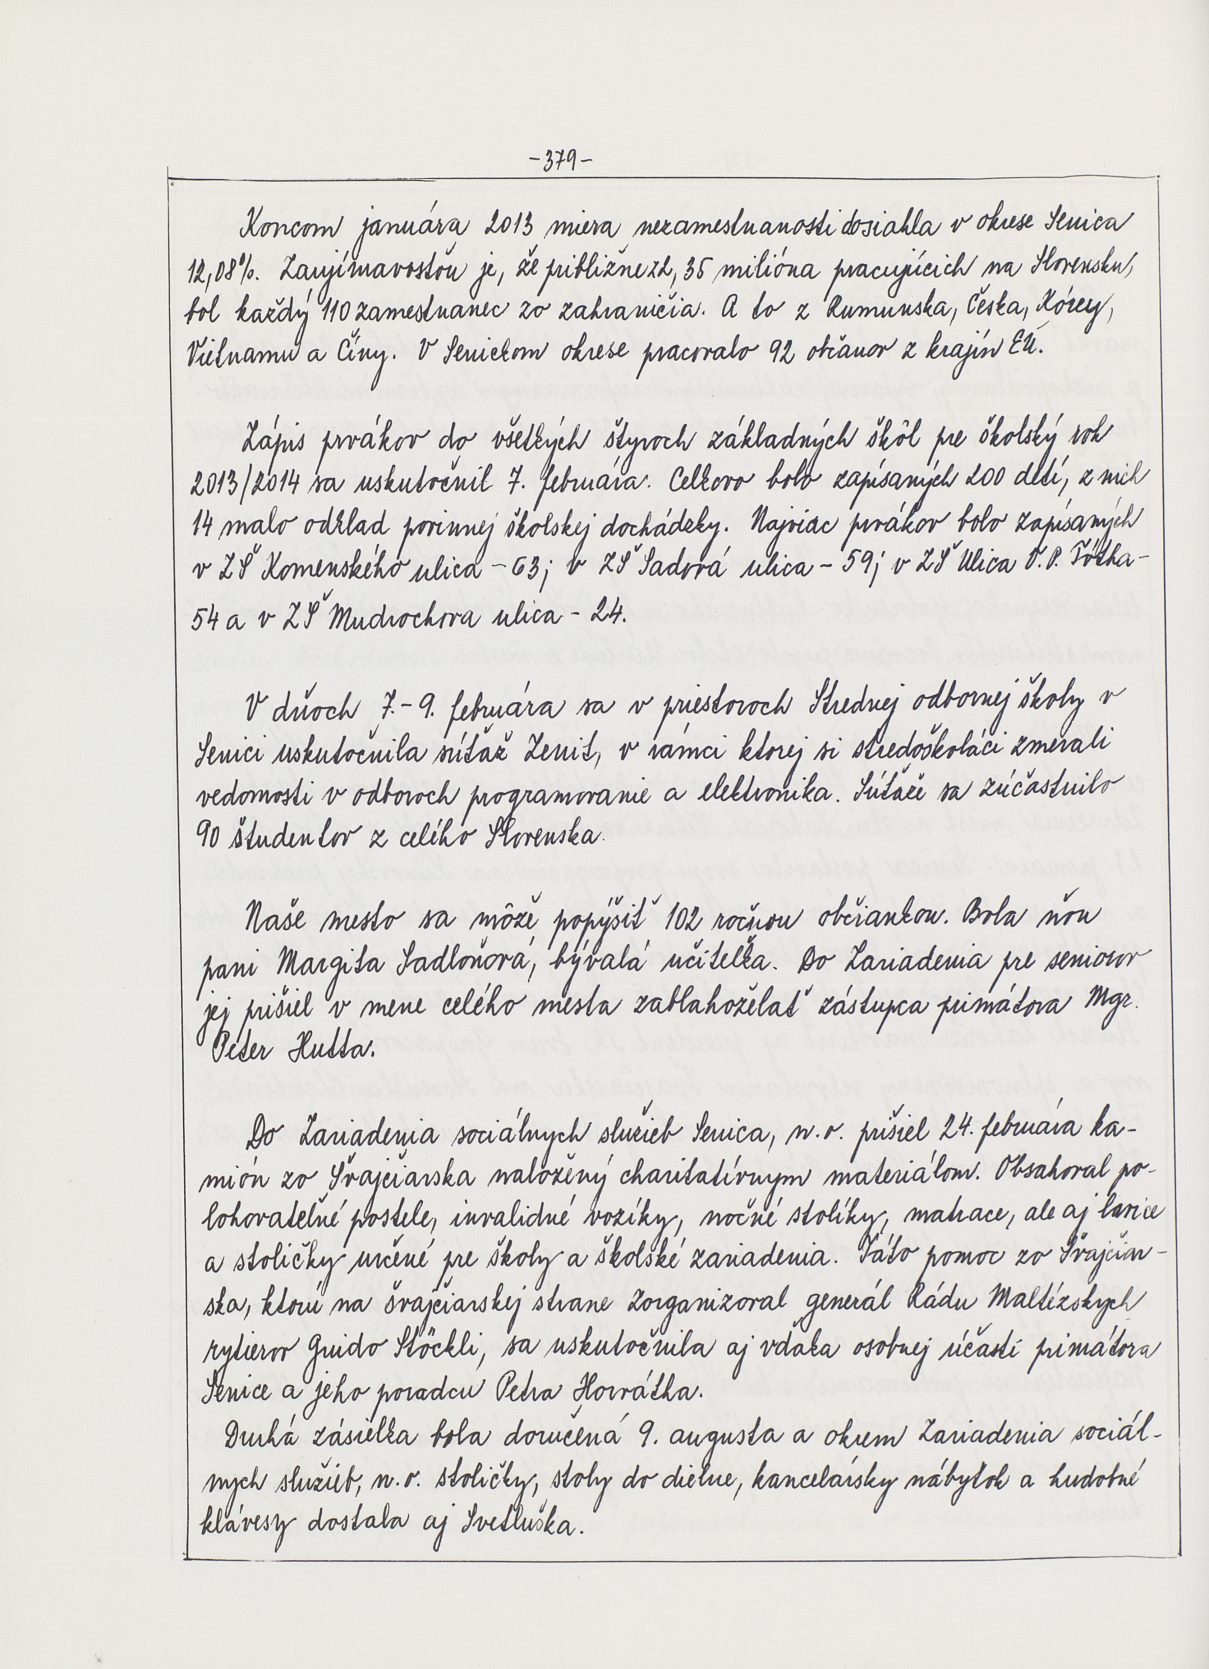 -379-
Koncom januára 2013 miera nezamestnanosti dosiahla v okrese Senica
12,08%. Zaujímavosťou je, že približne z 2,35 milióna pracujúcich na Slovensku,
bol každý 110 zamestnanec zo zahraničia. A to z Rumunska, Česka, Kórey,
Vietnamu a Číny. V Senickom okrese pracovalo 92 občanov z krajín EÚ.
Zápis prvákov do všetkých štyroch základných škôl pre školský rok
2013/2014 sa uskutočnil 7. februára. Celkovo bolo zapísaných 200 detí, z nich
14 malo odklad povinnej školskej dochádzky. Najviac prvákov bolo zapísaných
v ZŠ Komenského ulica - 63; v ZŠ Sadová ulica - 59; v ZŠ Ulica V. P. Tótha -
54 a v ZŠ Mudrochova ulica - 24.
V dňoch 7. - 9. februára sa v priestoroch Strednej odbornej školy v
Senici uskutočnila súťaž Zenit, v rámci ktorej si stredoškoláci zmerali
vedomosti v odboroch programovanie a elektronika. Súťaže sa zúčastnilo
90 študentov z celého Slovenska.
Naše mesto sa môže popýšiť 102 ročnou občiankou. Bola ňou
pani Margita Sadloňová, bývalá učiteľka. Do Zariadenia pre seniorov
jej prišiel v mene celého mesta zablahoželať zástupca primátora Mgr.
Peter Hutta.
Do Zariadenia sociálnych služieb Senica, n.o. prišiel 24. februára ka-
mión zo Švajčiarska naložený charitatívnym materiálom. Obsahoval po-
lohovateľné postele, invalidné vozíky, nočné stolíky, matrace, ale aj lavice
a stoličky určené pre školy a školské zariadenia. Táto pomoc zo Švajčiar-
ska, ktorú na švajčiarskej strane zorganizoval generál Rádu Maltézskych
rytierov Guido Stöckli, sa uskutočnila aj vďaka osobnej účasti primátora
Senice a jeho poradcu Petra Horvátha.
Druhá zásielka bola doručená 9. augusta a okrem Zariadenia sociál-
nych služieb, n.o. stoličky, stoly do dielne, kancelársky nábytok a hudobné
klávesy dostala aj Svetluška.